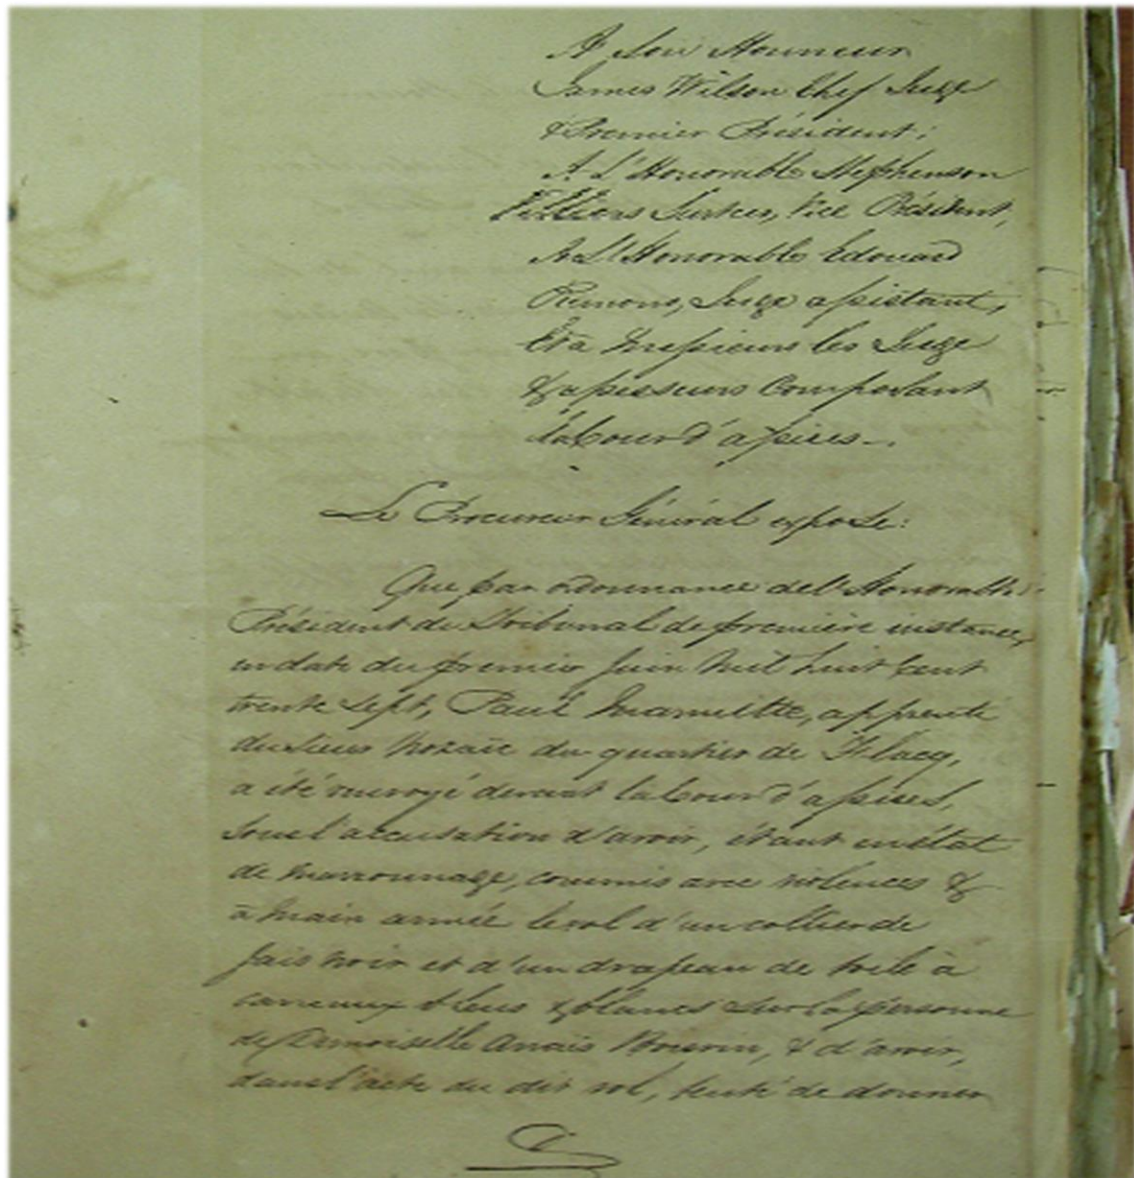 A Son Honneur
James Wilson Chef Juge
& Premier Président;
A L'Honorable Stephenson
Villiers Surtees, Vice Président,
A L'Honorable Edouard
Remono, Juge assistant,
Et à Messieurs les Juge
& assesseurs Composant
la Cour d'assises.
Le Procureur Général expose:
Que par ordonnance de l'Honorable
Président du Tribunal de première instance,
en date du premier Juin Mil huit Cent
trente Sept, Paul Mamette, apprenti
du Sieur du quartier de Flacq,
a été renvoyé devant la Cour d'assises,
sous l'accusation d'avoir, étant en état
de marronnage, commis avec violences &
à main armée le vol d'un collier de
jais noir et d'un drapeau de toile à
carreaux bleus & blancs sur la personne
de Demoiselle Anaïs & d'avoir,
dans l'acte du dit vol, tenté de donner